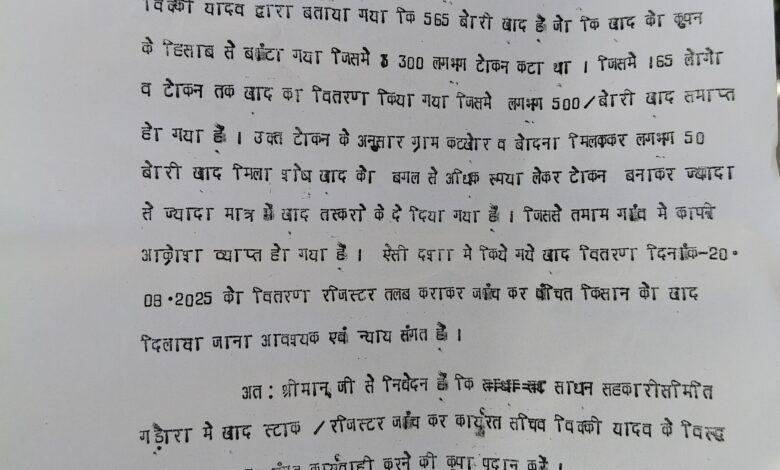 विक्की यादव द्वारा बताया गया कि 565 बोरी खाद है जो कि खाद को कूपन
के हिसाब से बांटा गया जिसमे 300 लगभग टोकन कटा था । जिसमे 165 लोगो
व टोकन तक खाद का वितरण किया गया जिसमे लगभग 500/बोरी खाद समाप्त
हो गया है । उक्त टोकन के अनुसार ग्राम कटखोर व बोदना मिलककर लगभग 50
बोरी खाद मिला शेष खाद को बगल से अधिक रूपया लेकर टोकन बनाकर ज्यादा
से ज्यादा मात्र में खाद तस्करो के दे दिया गया है । जिससे तमाम गांव मे काफी
आक्रोश व्याप्त हो गया है । ऐसी दशा मे किये गये खाद वितरण दिनांक-20.
08.2025 को वितरण रजिस्टर तलब कराकर जांच कर वंचित किसान को खाद
दिलाया जाना आवश्यक एवं न्याय संगत है ।
अत: श्रीमान् जी से निवेदन है कि साधन सहकारीसमिति
गड़ौरा मे खाद स्टाक / रजिस्टर जांच कर कार्यरत सचिव विक्की यादव के विरूद्ध
कार्यवाही करने की कृपा प्रदान करें ।